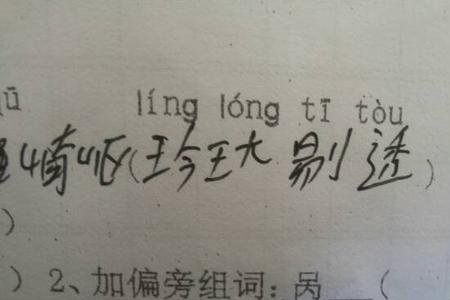 ū líng lóng tī tòu
崎岖(玲珑剔透)
)
) 2、加偏旁组词:呙 (